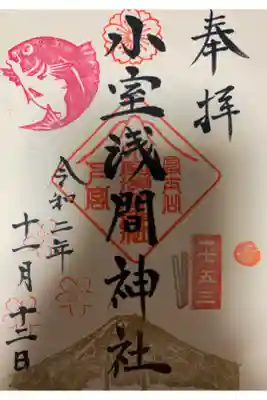 奉拝
小室浅間神社
令和二年
十一月十二日
七五三